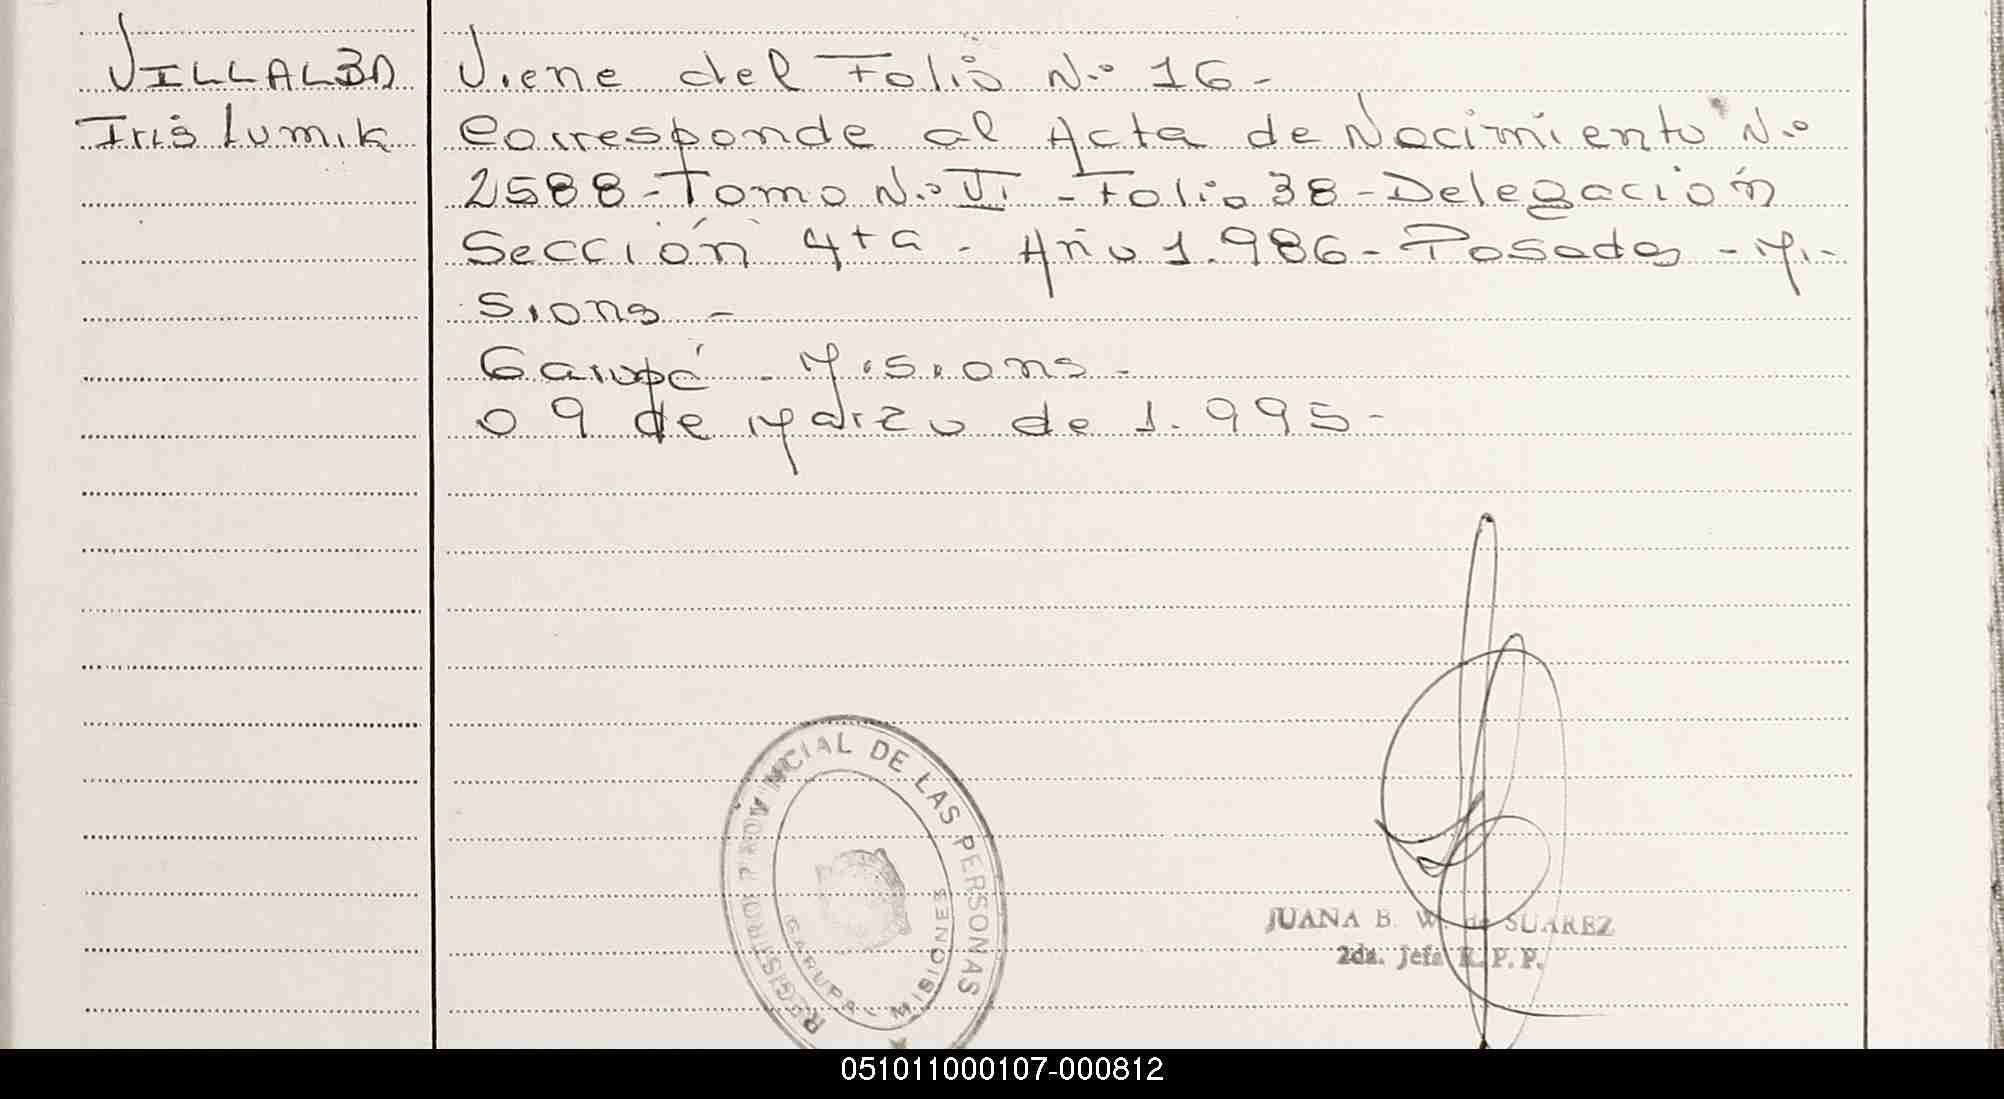 VILLALBA
Iris Lumik
Viene del Folio N.º 16 -
Corresponde al Acta de Nacimiento N.º
2588 - Tomo N.º VI - Folio 38 - Delegación
Sección 4ta - Año 1.986 - Posadas - Mi-
sions -
Garupá - Misions -
09 de Marzo de 1.995 -
REGISTRO PROVINCIAL DE LAS PERSONAS
GARUPA - MISIONES
JUANA B. W. de SUAREZ
2da. Jefa R. P. P.
051011000107-000812